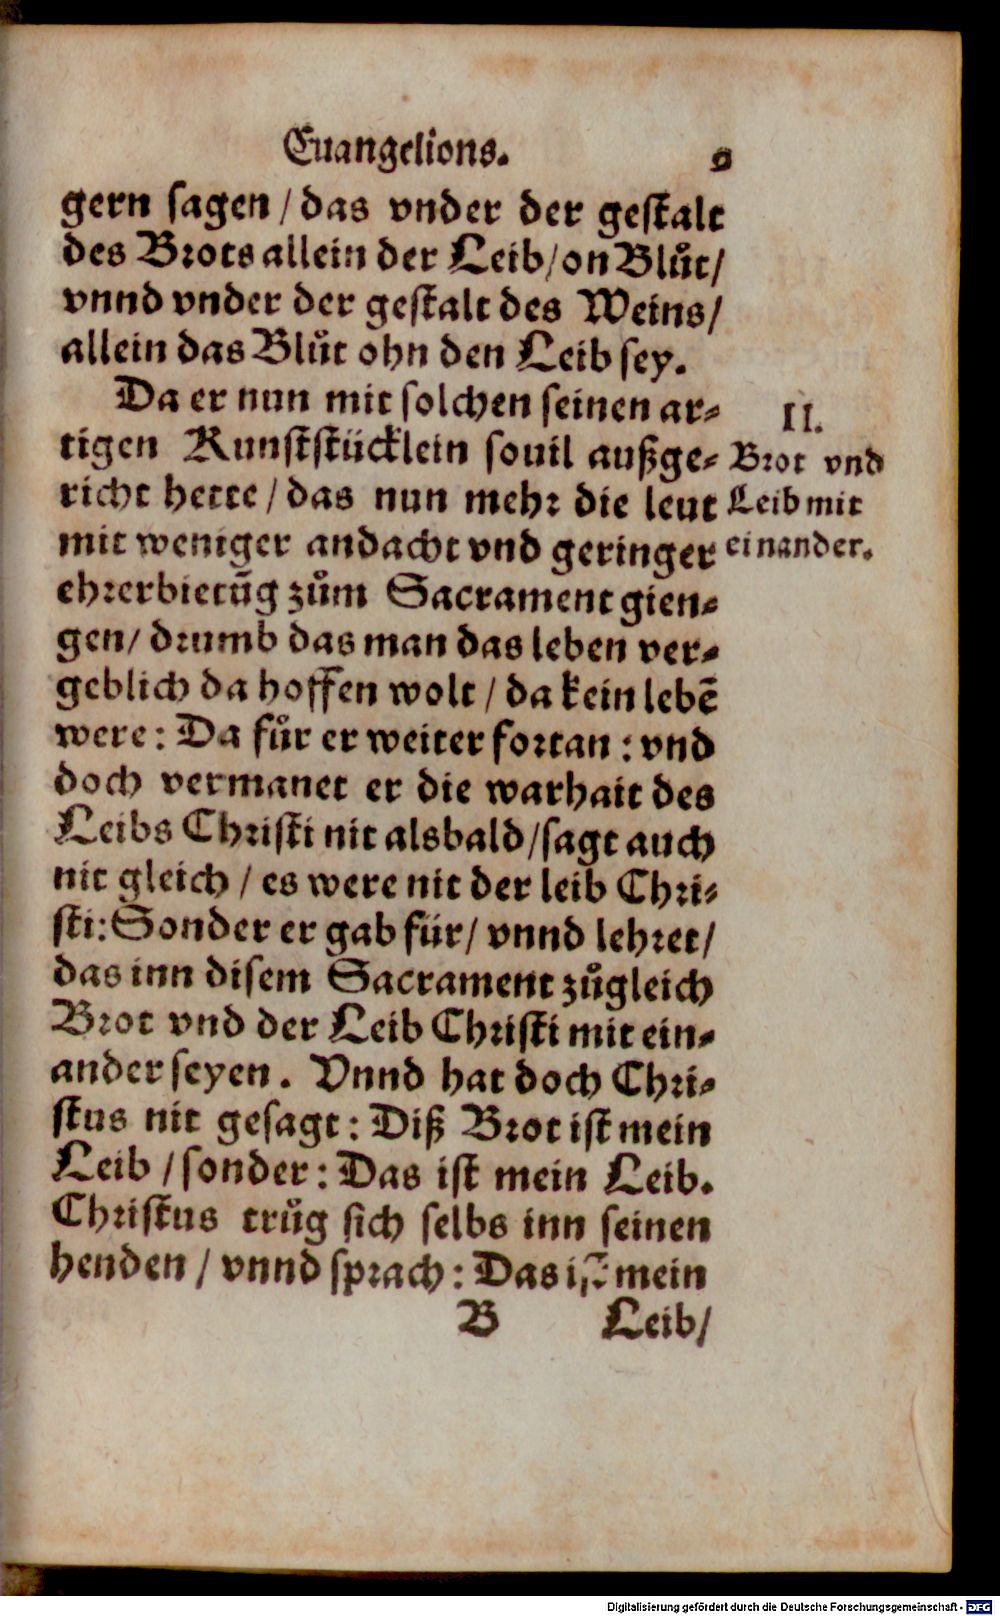 Euangelions. 9
gern sagen / das vnder der gestalt
des Brots allein der Leib / on Blůt /
vnnd vnder der gestalt des Weins /
allein das Blůt ohn den Leib sey.
Da er nun mit solchen seinen ar⸗
tigen Kunststücklein souil außge⸗
richt hette / das nun mehr die leut
mit weniger andacht vnd geringer
ehrerbietūg zům Sacrament gien⸗
gen / drumb das man das leben ver⸗
geblich da hoffen wolt / da kein lebē
were: Da fůr er weiter fortan: vnd
doch vermanet er die warhait des
Leibs Christi nit alsbald / sagt auch
nit gleich / es were nit der leib Chri⸗
sti: Sonder er gab für / vnnd lehret /
das inn disem Sacrament zůgleich
Brot vnd der Leib Christi mit ein⸗
ander seyen. Vnnd hat doch Chri⸗
stus nit gesagt: Diß Brot ist mein
Leib / sonder: Das ist mein Leib.
Christus trůg sich selbs inn seinen
henden / vnnd sprach: Das ist mein
B Leib /
II.
Brot vnd
Leib mit
einander.
Digitalisierung gefördert durch die Deutsche Forschungsgemeinschaft - DFG